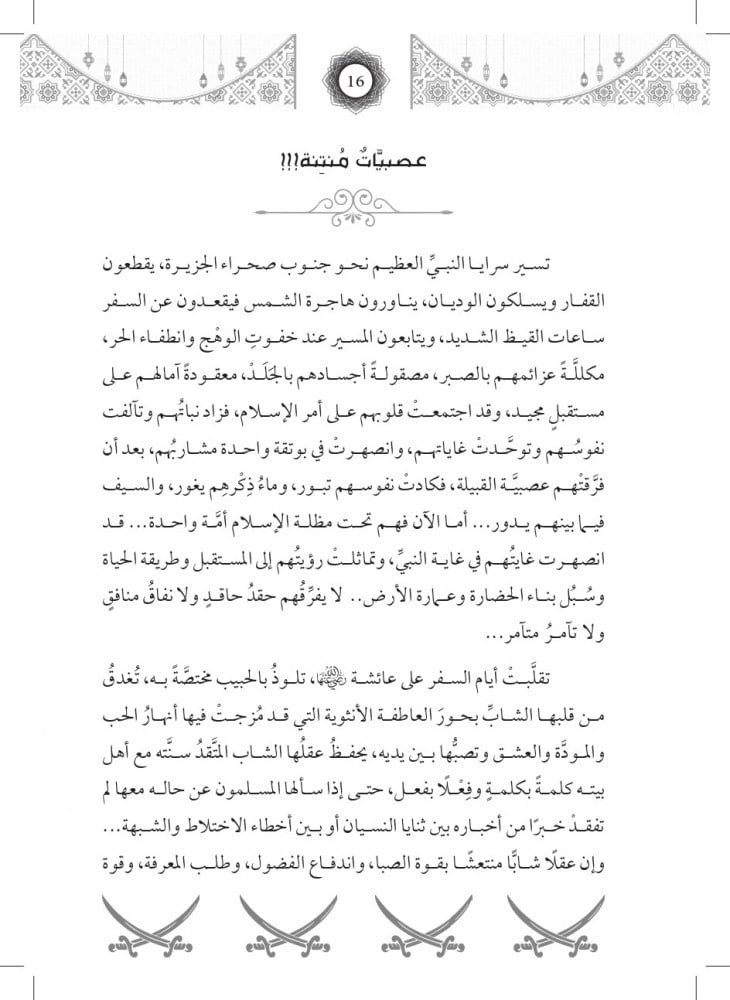 16
عصبيَّاتٌ مُنتِنة!!!
تسير سرايا النبيِّ العظيم نحو جنوب صحراء الجزيرة، يقطعون
القفار ويسلكون الوديان، يناورون هاجرة الشمس فيقعدون عن السفر
ساعات القيظ الشديد، ويتابعون المسير عند خفوتِ الوهْج وانطفاء الحر،
مكللَّةً عزائمهم بالصبر، مصقولةً أجسادهم بالجَلَدْ، معقودةً آمالهم على
مستقبلٍ مجيد، وقد اجتمعتْ قلوبهم على أمر الإسلام، فزاد نباتُهم وتآلفت
نفوسُهم وتوحَّدتْ غاياتهم، وانصهرتْ في بوتقة واحدة مشاربُهم، بعد أن
فرَّقتْهم عصبيَّة القبيلة، فكادتْ نفوسهم تبور، وماءُ ذِكْرهِم يغور، والسيف
فيما بينهم يدور... أما الآن فهم تحت مظلة الإسلام أمَّة واحدة... قد
انصهرت غايتُهم في غاية النبيِّ، وتماثلتْ رؤيتُهم إلى المستقبل وطريقة الحياة
وسُبُل بناء الحضارة وعمارة الأرض.. لا يفرِّقُهم حقدُ حاقدٍ ولا نفاقُ منافقٍ
ولا تآمرُ متآمر...
تقلَّبتْ أيام السفر على عائشة ﵂، تلوذُ بالحبيب مختصَّةً به، تُغدقُ
من قلبها الشابِّ بحورَ العاطفة الأنثوية التي قد مُزجتْ فيها أنهارُ الحب
والمودَّة والعشق وتصبُّها بين يديه، يحفظُ عقلُها الشاب المتَّقدُ سنَّته مع أهل
بيته كلمةً بكلمةٍ وفِعْلًا بفعل، حتى إذا سألها المسلمون عن حاله معها لم
تفقدْ خبرًا من أخباره بين ثنايا النسيان أو بين أخطاء الاختلاط والشبهة...
وإن عقلًا شابًّا منتعشًا بقوة الصبا، واندفاع الفضول، وطلب المعرفة، وقوة